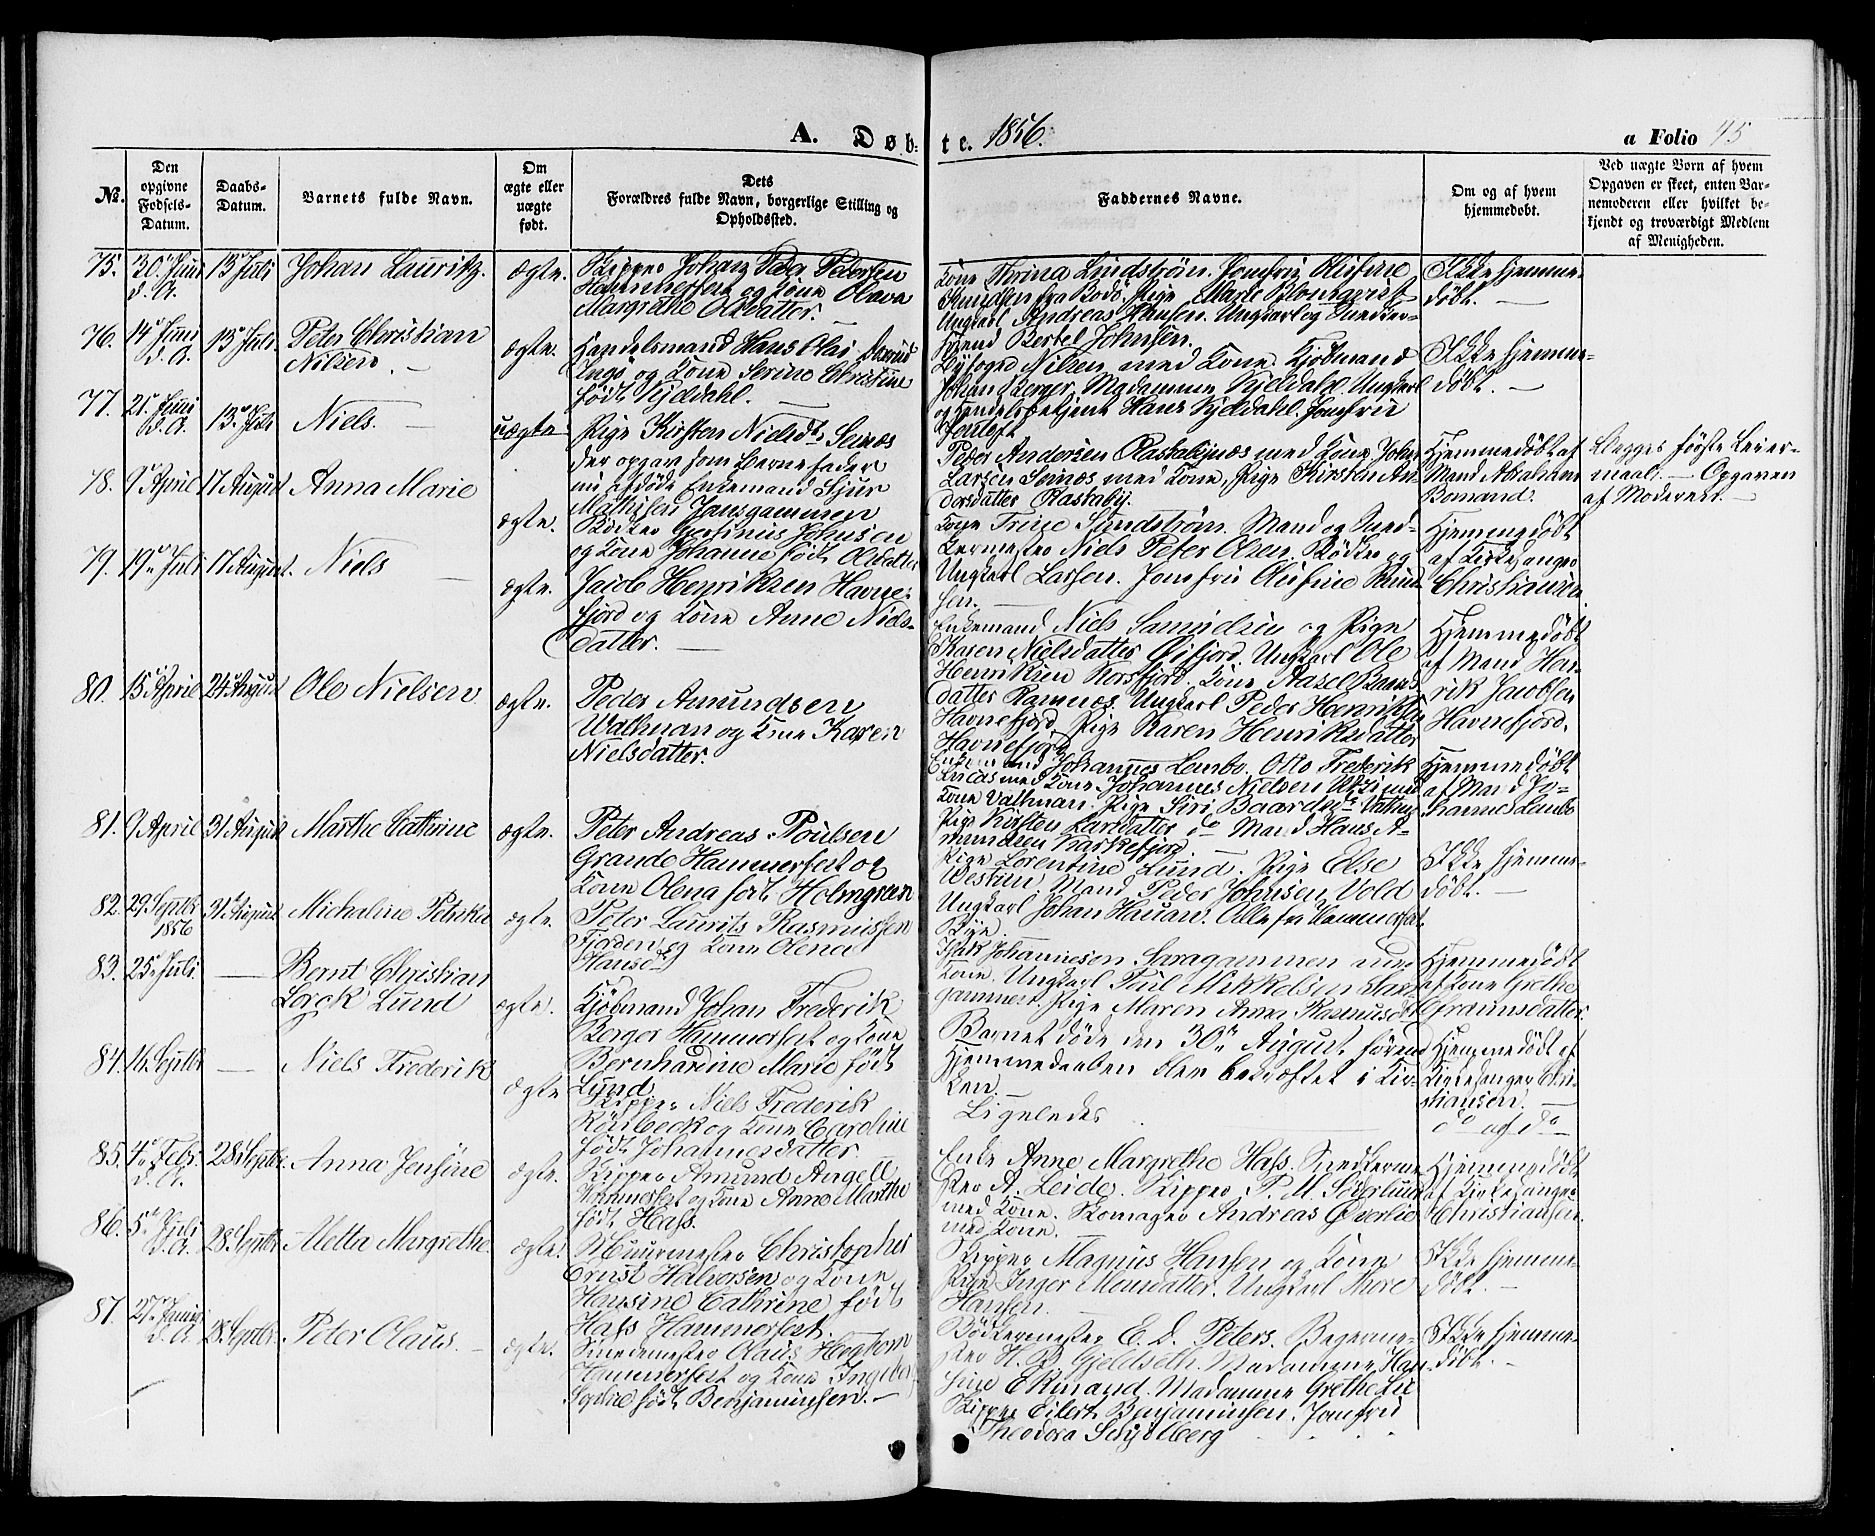 A. Døb-
te. 1856.
a Folio 45
№.
Den opgivne Fødsels-Datum.
Daabs-Datum.
Barnets fulde Navn.
Om ægte eller uægte født.
Dets Forældres fulde Navn, borgerlige Stilling og Opholdssted.
Faddernes Navne.
Om og af hvem hjemmedøbt.
Ved uægte Børn af hvem Opgaven er skeet, enten Barnemoderen eller hvilket bekjendt og troværdigt Medlem af Menigheden.
75. 30. Juni d. A. 13 Juli Johan Lauritz. ægte.
Skipper Johan Peder Pedersen
Hammerfest og Kone Olava
Margrethe Olsdatter.
Kone Thrina Lindstrøm. Jomfru Olufine
Knudsen fra Bodø. Pige Marie Blomqvist
Ungkarl Andreas Hansen. Ungkarl og Snedker-
svend Bertel Johnsen.
Ikke hjemme-
døbt. —
76. 14 Juni d. A. 13 Juli Peter Christian
Nilsen. — ægte.
Handelsmand Hans Olai
og Kone Serine Christine
født Kjeldahl. —
Byfoged Nilsen med Kone. Kjøbmand
Johan Berger. Madamme Kjeldahl. Ungkarl
og Handelsbetjent Hans Kjeldahl. Jomfru
Ikke hjemme-
døbt. —
77. 21. Juni d. A. 13 Juli Niels. — uægte.
Pige Kirsten Nielsdtr Seinæs
der opgav som Barnefader
nu afdøde Enkemand Sjur
Mathisen Jansgammen
Peder Andersen Raskebynæs med Kone. John
Larsen Seinæs med Kone. Pige Kirsten An-
dersdatter Raskeby.
Hjemmedøbt af
Mand Abraham
Bomand.
Begges første Leier-
maal. — Opgaven
af Moderen. —
78. 9 April 17 August Anna Marie ægte.
Bødker Gerhinius Johnsen
og Kone Johanne født Olsdatter
Kone Trine Lindstrøm. Mand og Sned-
kermester Niels Peter Olsen. Bødker og
Ungkarl Larsen. Jomfru Olufine Knud-
sen. —
Hjemmedøbt
af Kirkesanger
Christiansen
79. 19 Juli 17 August. Niels — ægte.
Jacob Henriksen Havne-
fjord og Kone Anne Niels-
datter. —
Enkemand Niels Samuelsen og Pige
Karen Nielsdatter Øifjord. Ungkarl Ole
Henriksen Korsfjord. Kone Hazel
datter Ramnæs. Ungkarl Peder Henriksen
Havnefjord. Pige Karen Henriksdatter
Havnefjord
Hjemmedøbt
af Mand Hen-
rik Jacobsen
Havnefjord.
80. 15 April 24 August Ole Nielsen ægte.
Peder Amundsen
Walkman og Kone Karen
Nielsdatter.
Enkemand Johannes Lembo. Otto Frederik
med Kone. Johannes Nielsen med
Kone Valkman. Pige Siri Baards
Pige Kirsten Larsdatter do. Mand Hans A-
mundsen Karkefjord
Hjemmedøbt
af Mand Jo-
hannes Lembo
81. 9 April 31 August Marthe Cathrine ægte.
Peter Andreas Poulsen
Grande Hammerfest og
Kone Olena født Holmgreen
Pige Lorentine Lund. Pige Else
Westum. Mand Peder Johnsen Vold
Ungkarl Johan Hauan. Alle fra Hammerfest
Ikke hjemme-
døbt. —
82. 29 Septbr 1856 31 August Micheline Petrike ægte.
Peter Laurits Rasmussen
Fjorden og Kone Olena
Hansd
Pige
Isak Johannesen Saragammen med
Kone. Ungkarl Paul Mikkelsen
gammen. Pige Maren Anna Rasmusd
Hjemmedøbt
af Kone Grethe
Efraimsdatter
83. 25 Juli. — Bernt Christian
Lorck Lund ægte.
Kjøbmand Johan Frederik
Berger Hammerfest og Kone
Bernhardine Marie født
Lund
Barnet døde den 30 August førend
Hjemmedaaben blev bekræftet i Kir-
ken.
Hjemmedøbt af
Kirkesanger Chri-
stiansen.
84. 16 Septbr — Niels Frederik ægte
Skipper Niels Frederik
Rønbeck og Kone Caroline
født Johannesdatter.
Ligeledes
do og do
85. 4 Febr. d. A. 28 Septbr. Anna Jensine ægte.
Skipper Amund Angell
Hammerfest og Kone Anne Marthe
født Hass.
Enke Anne Margrethe Hass. Snedkerme-
ster A. Leide. Skipper P. M. Søderlund
med Kone. Skomager Andreas Øverlie
med Kone.
Hjemmedøbt
af Kirkesanger
Christiansen.
86. 5 Juli d. A. 28 Septbr. Aletta Margrethe. ægte.
Muurmester Christopher
Ernst Halvorsen og Kone
Hansine Cathrine født
Hass Hammerfest.
Skipper Magnus Hansen og Kone
Pige Inger Monsdatter. Ungkarl Thore
Hansen.
Ikke hjemme-
døbt. —
87. 27 Juni d. A. 28 Septbr. Peter Olaus. — ægte.
Smedemester Olaus Hegstom
Hammerfest og Kone Ingeborg
Sophie født Benjaminsen. —
Bødkermester E. D. Peters. Bagerme-
ster H. B. Gjeldseth. Madamme Han-
sine Ekmand. Madamme Grethe Lie
Skipper Eilert Benjaminsen. Jomfru
Theodora Schjølberg
Ikke hjemme-
døbt. —